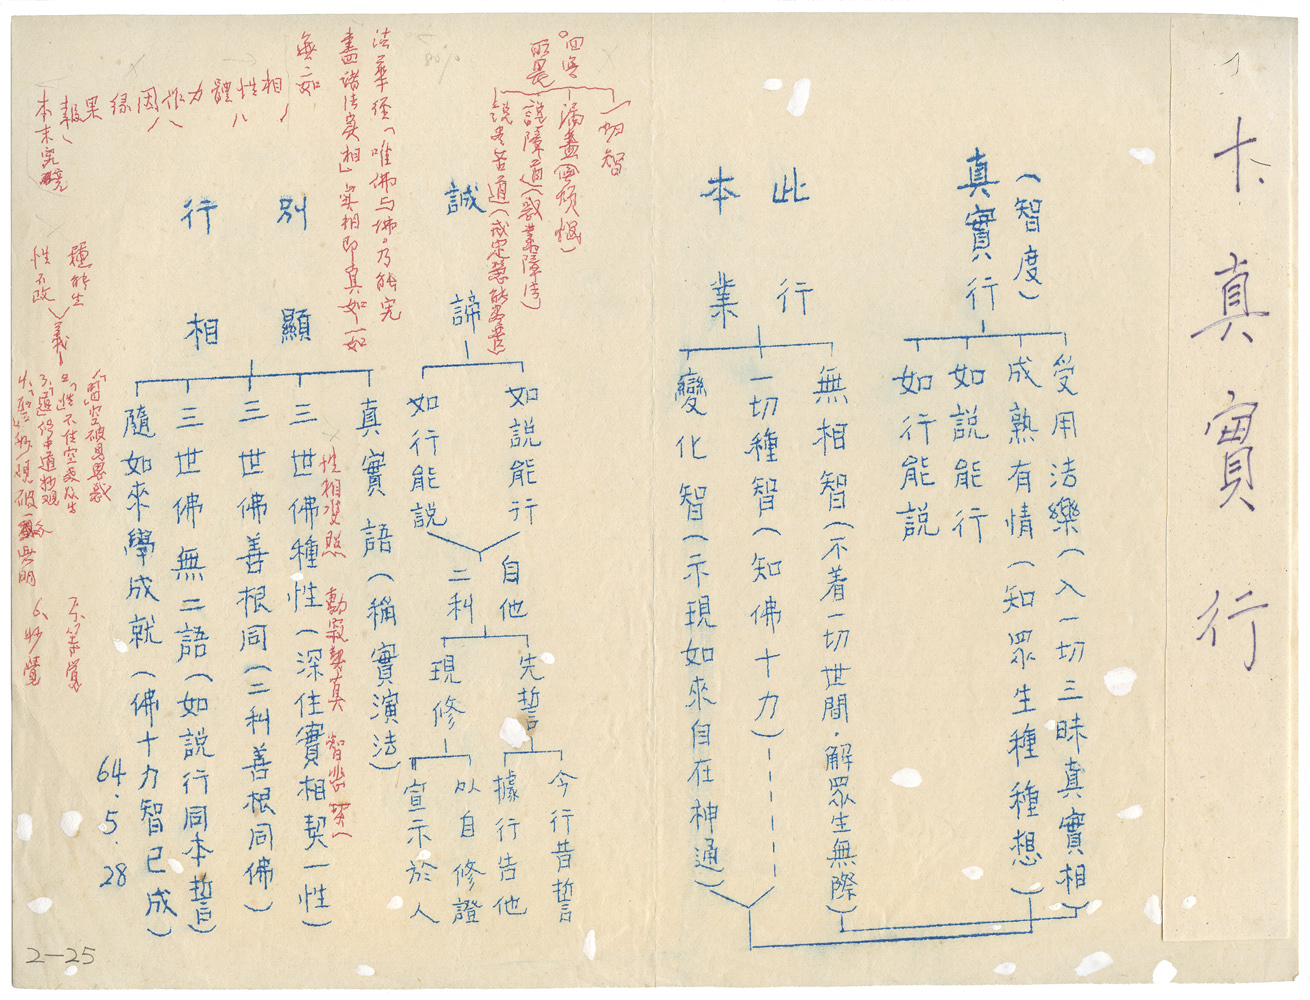 十、真實行
(智度)
真實行
受用法樂(入一切三昧真實相)
成熟有情(知眾生種種想)
如說能行
如行能說
此行
本業
無相智(不着一切世間.解眾生無際)
一切種智(知佛十力)
變化智(示現如來自在神通)
四無
所畏
一切智
漏盡(四煩惱)
說障道(惑業障法)
說盡苦道(戒定慧能盡苦)
誠諦
如說能行
如行能說
自他
二利
先誓
現修
今行昔誓
據行告他
以自修證
宣示於人
法華經「唯佛与佛.乃能究
盡諸法實相」實相即真如一如
無二如
相性體力作因緣果報
本末究竟
別顯
行相
真實語(稱實演法)
三世佛種性(深住實相契一性)
性相雙照 動寂契真
三世佛善根同(二利善根同佛)
三世佛無二語(如說行同本誓)
隨如來學成就(佛十力智已成)
種能生
性不改
義
64.5.28
2-25